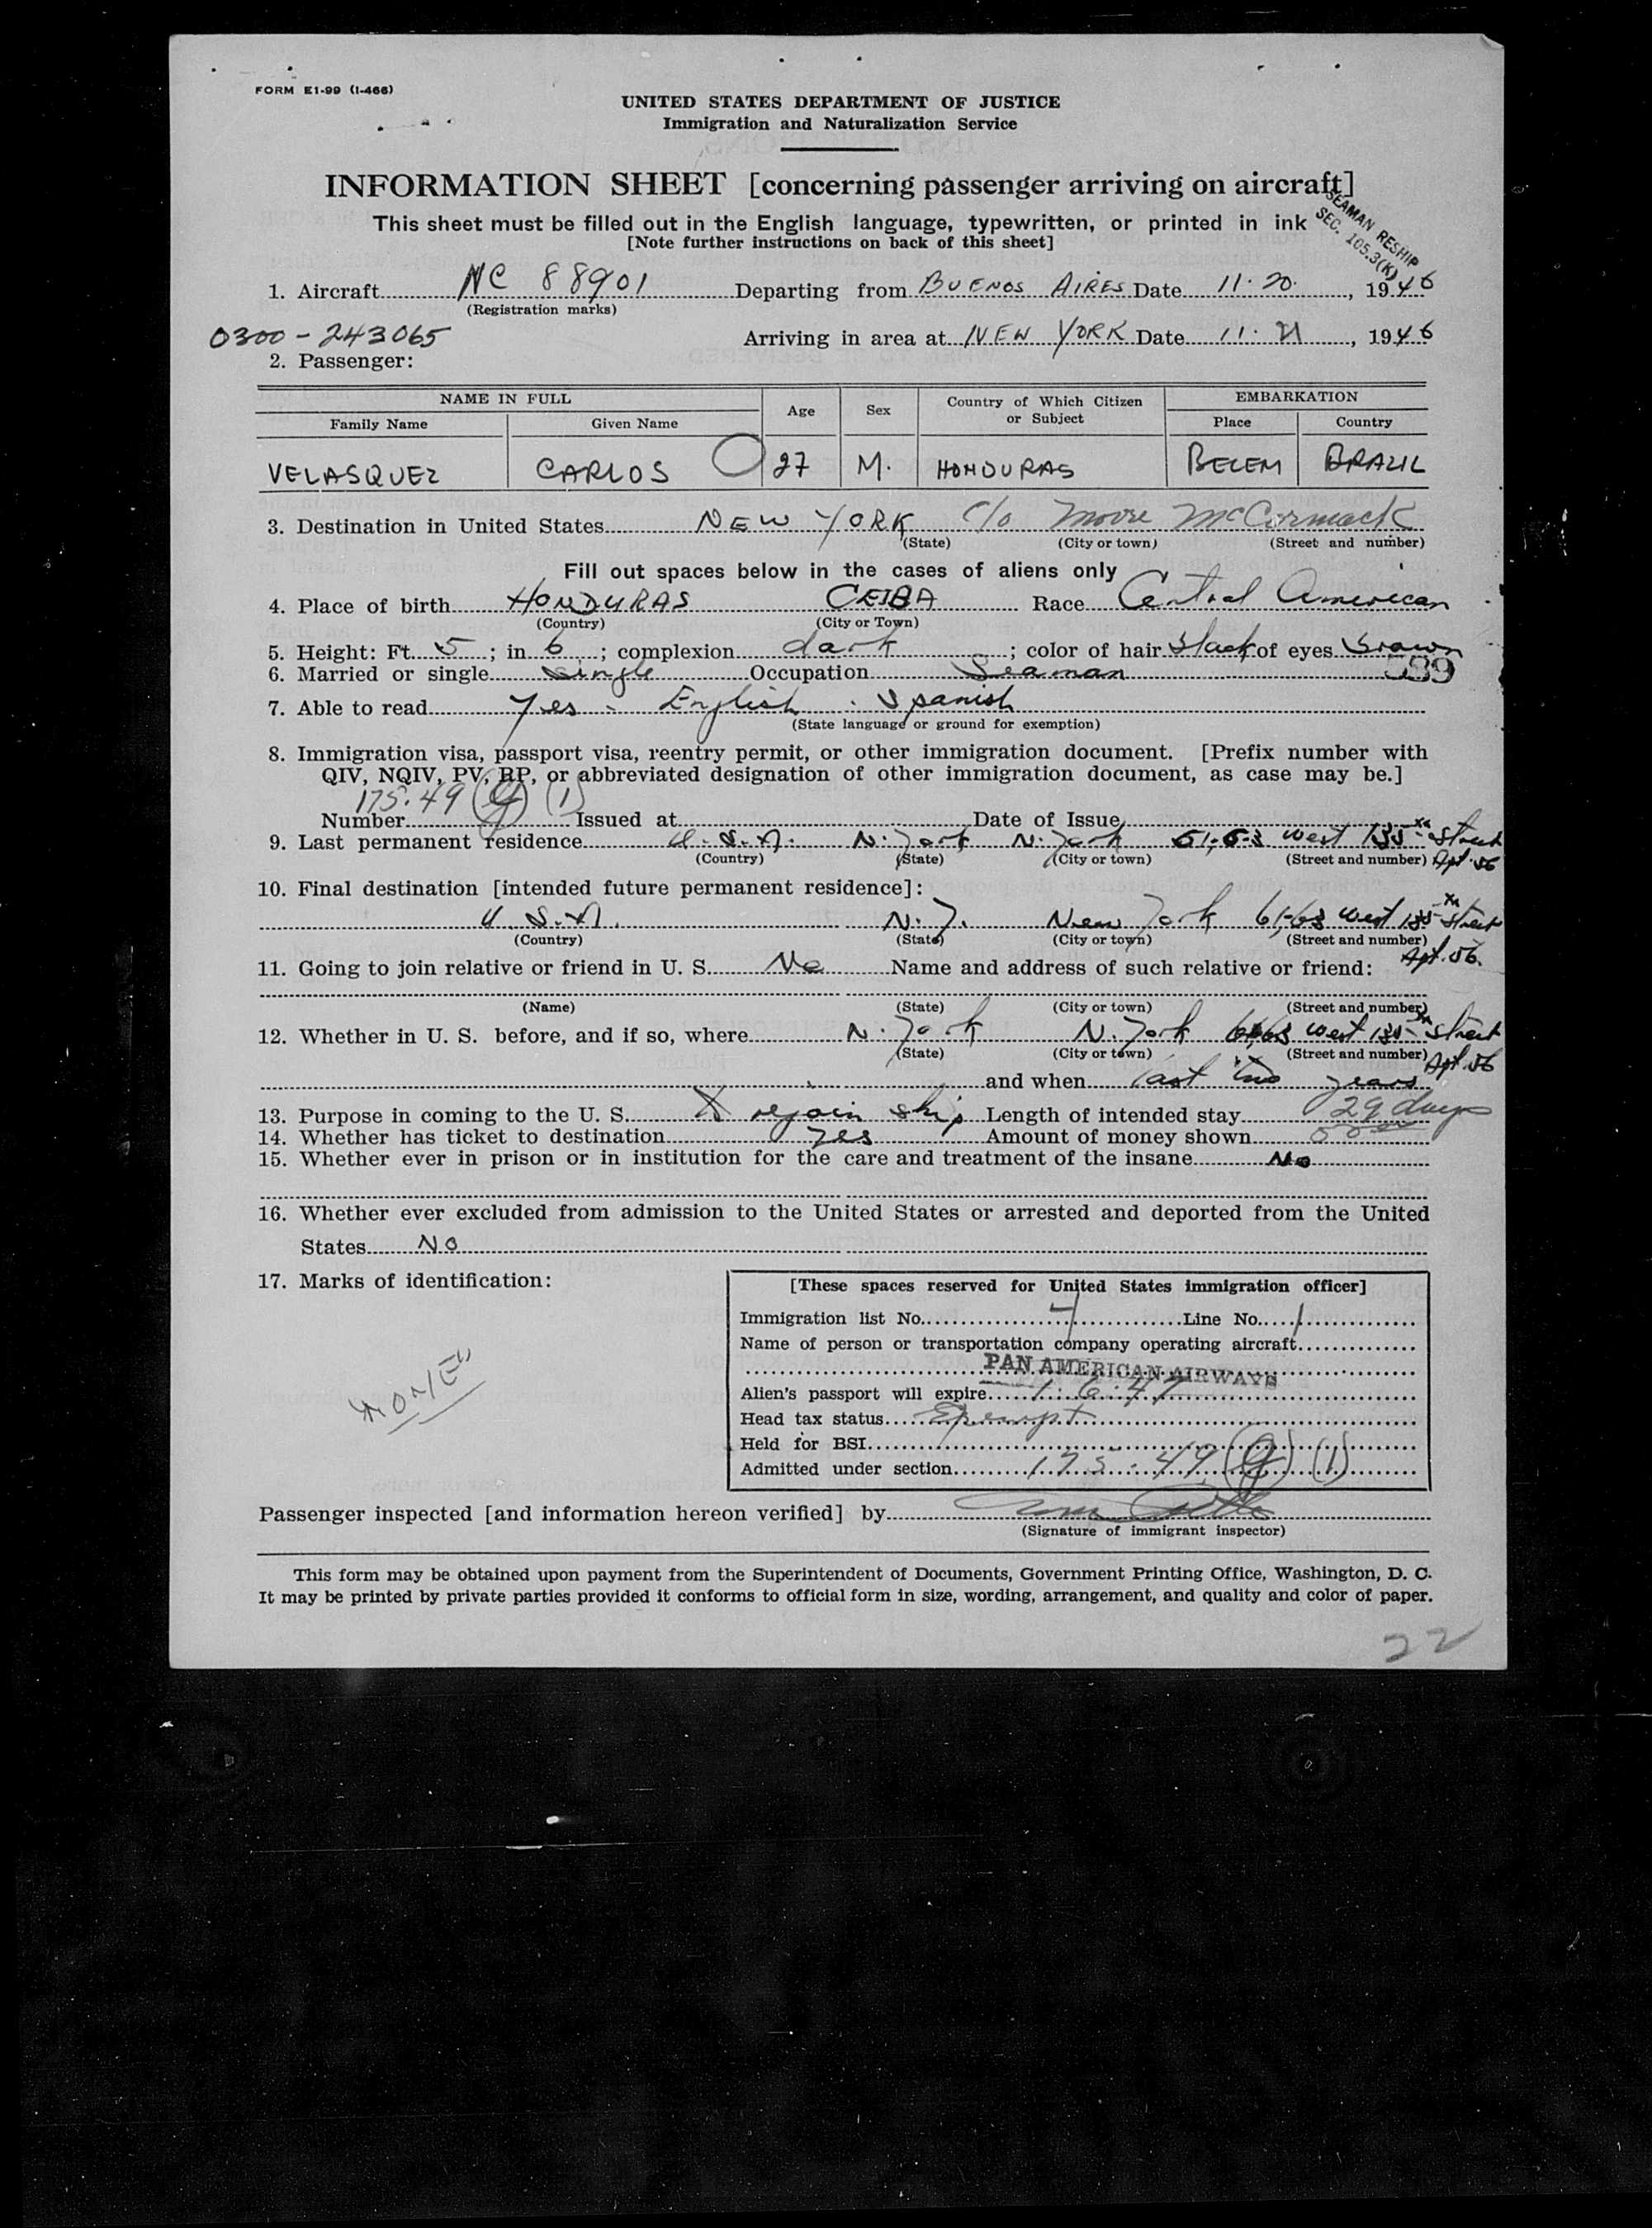 FORM E1-99 (I-466)
UNITED STATES DEPARTMENT OF JUSTICE
Immigration and Naturalization Service
INFORMATION SHEET [concerning passenger arriving on aircraft]
This sheet must be filled out in the English language, typewritten, or printed in ink
[Note further instructions on back of this sheet]
SEAMAN RESHIP
SEC. 105.3(K)
1. Aircraft NC 88901 Departing from BUENOS AIRES Date 11·20·, 1946
(Registration marks)
0300-243065 Arriving in area at NEW YORK Date 11·21, 1946
2. Passenger:
NAME IN FULL Age Sex Country of Which Citizen or Subject EMBARKATION
Family Name Given Name Place Country
VELASQUEZ CARLOS 27 M. HONDURAS BELEM BRAZIL
3. Destination in United States NEW YORK C/O Moore McCormack
(State) (City or town) (Street and number)
Fill out spaces below in the cases of aliens only
4. Place of birth HONDURAS CEIBA Race Central American
(Country) (City or Town)
5. Height: Ft. 5; in 6; complexion dark; color of hair black of eyes brown
6. Married or single single Occupation Seaman 539
7. Able to read Yes - English . Spanish
(State language or ground for exemption)
8. Immigration visa, passport visa, reentry permit, or other immigration document. [Prefix number with
QIV, NQIV, PV, RP, or abbreviated designation of other immigration document, as case may be.]
175.49 (g) (1)
Number Issued at Date of Issue
9. Last permanent residence U.S.A. N. York N. York 61,63 West 135th Street
(Country) (State) (City or town) (Street and number) Apt. 56
10. Final destination [intended future permanent residence]:
U.S.A. N.Y. New York 61-63 West 135th Street
(Country) (State) (City or town) (Street and number)
11. Going to join relative or friend in U. S. No Name and address of such relative or friend: Apt. 56.
(Name) (State) (City or town) (Street and number)
12. Whether in U. S. before, and if so, where N. York N. York 61,63 West 135th Street
(State) (City or town) (Street and number) Apt. 56
and when last two years
13. Purpose in coming to the U. S. To rejoin ship Length of intended stay 29 days
14. Whether has ticket to destination yes Amount of money shown
15. Whether ever in prison or in institution for the care and treatment of the insane No
16. Whether ever excluded from admission to the United States or arrested and deported from the United
States NO
17. Marks of identification:
"NONE"
[These spaces reserved for United States immigration officer]
Immigration list No. 7 Line No. 1
Name of person or transportation company operating aircraft
PAN AMERICAN AIRWAYS
Alien's passport will expire 1.6.47
Head tax status Exempt
Held for BSI
Admitted under section 175.49 (g) (1)
Passenger inspected [and information hereon verified] by
(Signature of immigrant inspector)
This form may be obtained upon payment from the Superintendent of Documents, Government Printing Office, Washington, D. C.
It may be printed by private parties provided it conforms to official form in size, wording, arrangement, and quality and color of paper.
22